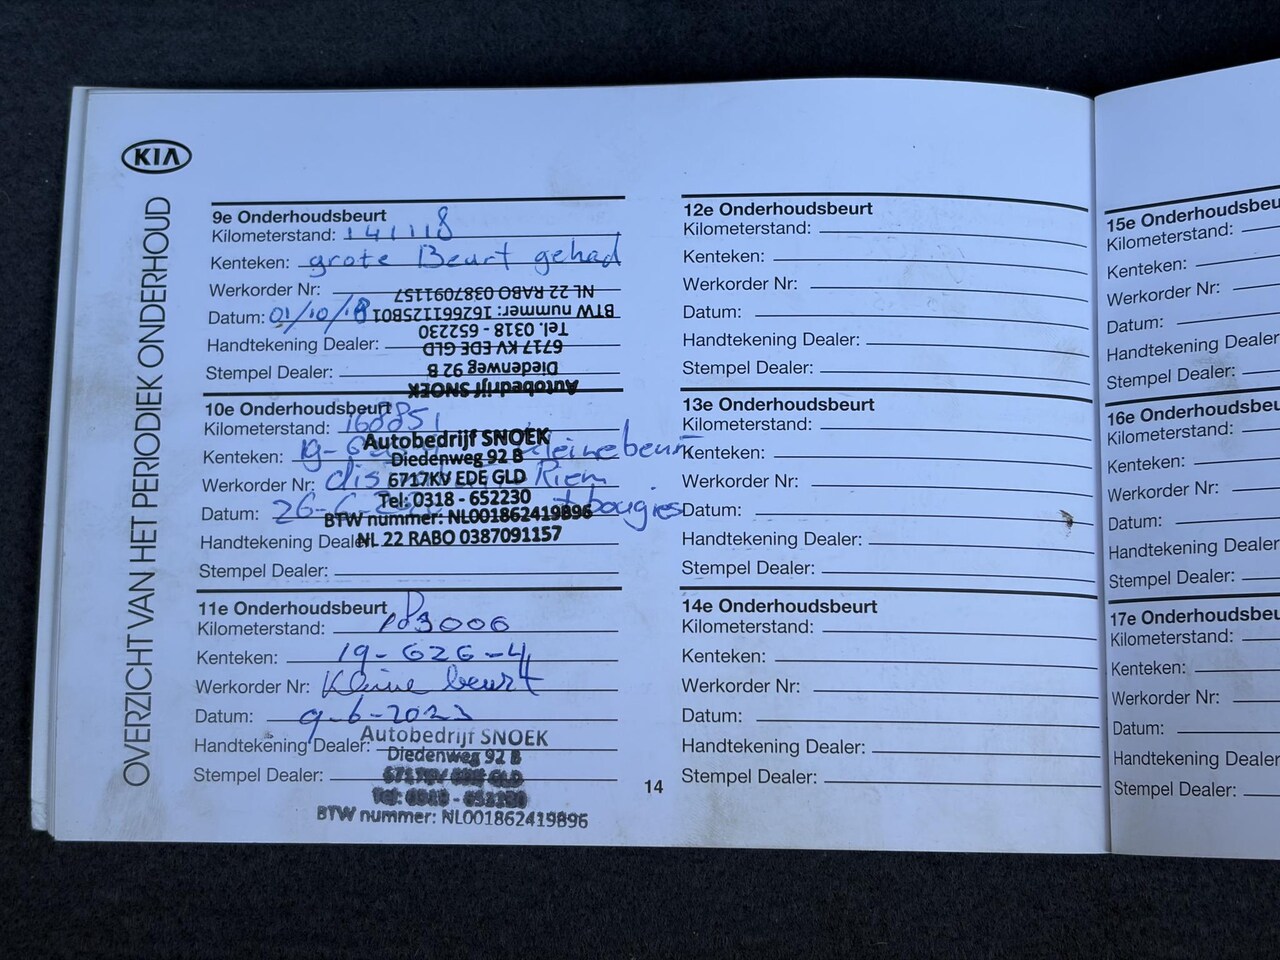 KIA
OVERZICHT VAN HET PERIODIEK ONDERHOUD
9e Onderhoudsbeurt
Kilometerstand: 141118
Kenteken: grote Beurt gehad
Werkorder Nr:
Datum: 01/10/18
Handtekening Dealer:
Stempel Dealer:
Autobedrijf SNOEK
Diedenweg 92 B
6717 KV EDE GLD
Tel. 0318 - 652230
BTW nummer: 162661125B01
NL 22 RABO 0387091157
10e Onderhoudsbeurt
Kilometerstand: 168851
Kenteken: kleine beurt
Werkorder Nr: Riem
Datum: 26-6- + bougies
Handtekening Dealer:
Stempel Dealer:
Autobedrijf SNOEK
Diedenweg 92 B
6717KV EDE GLD
Tel: 0318 - 652230
BTW nummer: NL001862419B96
NL 22 RABO 0387091157
11e Onderhoudsbeurt
Kilometerstand: 183006
Kenteken: 19-GZG-4
Werkorder Nr: Kleine beurt
Datum: 9-6-2023
Handtekening Dealer:
Stempel Dealer:
Autobedrijf SNOEK
Diedenweg 92 B
6717KV EDE GLD
Tel: 0318 - 652230
BTW nummer: NL001862419B96
14
12e Onderhoudsbeurt
Kilometerstand:
Kenteken:
Werkorder Nr:
Datum:
Handtekening Dealer:
Stempel Dealer:
13e Onderhoudsbeurt
Kilometerstand:
Kenteken:
Werkorder Nr:
Datum:
Handtekening Dealer:
Stempel Dealer:
14e Onderhoudsbeurt
Kilometerstand:
Kenteken:
Werkorder Nr:
Datum:
Handtekening Dealer:
Stempel Dealer:
15e Onderhoudsbeu
Kilometerstand:
Kenteken:
Werkorder Nr:
Datum:
Handtekening Dealer
Stempel Dealer:
16e Onderhoudsbeu
Kilometerstand:
Kenteken:
Werkorder Nr:
Datum:
Handtekening Dealer
Stempel Dealer:
17e Onderhoudsbeu
Kilometerstand:
Kenteken:
Werkorder Nr:
Datum:
Handtekening Dealer
Stempel Dealer: